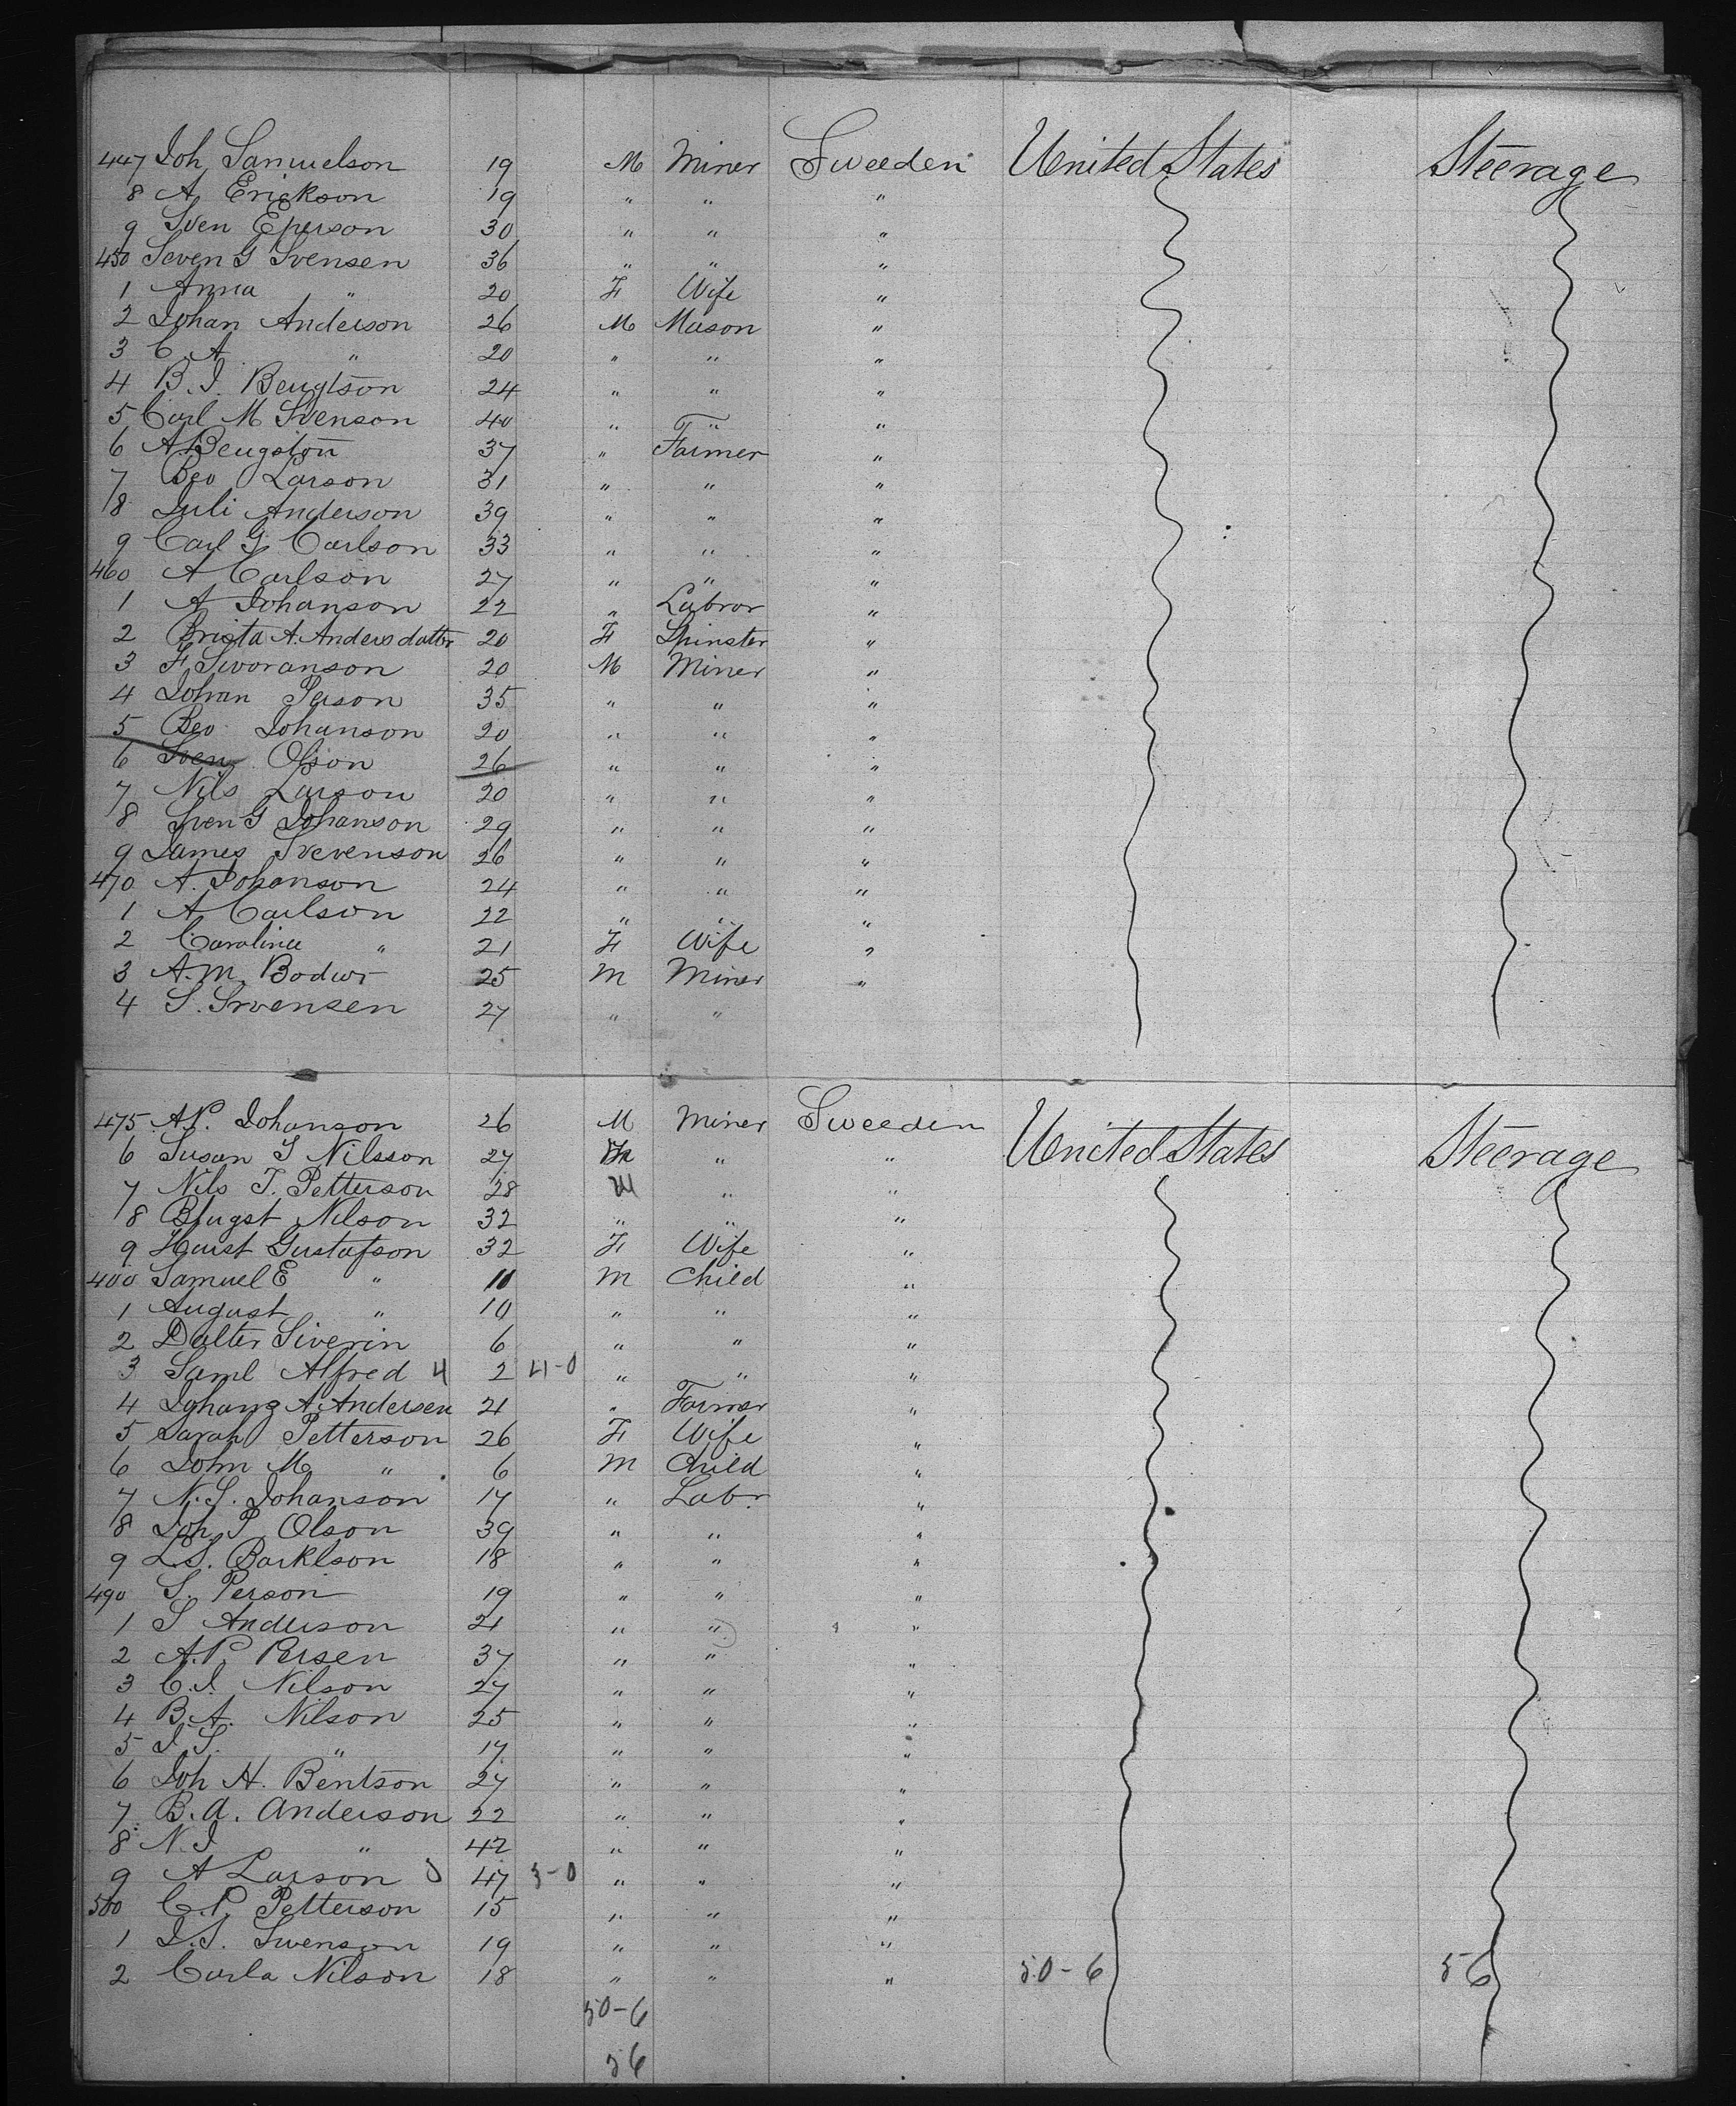 447 Joh Samuelson 19 M Miner Sweeden United States Steerage
8 A Erickson 19 " " "
9 Sven Eperson 30 " " "
450 Seven G Svensen 36 " " "
1 Anna " 20 F Wife "
2 Johan Anderson 26 M Mason "
3 C A " 20 " " "
4 B. J. Beugtson 24 " " "
5 Carl M Svenson 40 " " "
6 A Beugston 37 " Farmer "
7 Beo Larson 31 " " "
8 Juli Anderson 39 " " "
9 Carl G Carlson 33 " " "
460 A Carlson 27 " " "
1 A Johanson 22 " Labror "
2 Brista A. Andersdatter 20 F Spinster "
3 F. Sworanson 20 M Miner "
4 Johan Person 35 " " "
5 Beo Johanson 20 " " "
6 Sven Olson 26 " " "
7 Nils Larson 20 " " "
8 Sven G Johanson 29 " " "
9 James Svevenson 26 " " "
470 A. Johanson 24 " " "
1 A Carlson 22 " " "
2 Carolina " 21 F Wife "
3 A. M. Bodwr 25 M Miner "
4 S. Srvensen 27 " "
475 A P. Johanson 26 M Miner Sweeden United States Steerage
6 Susan S Nilsson 27 " "
7 Nils T. Petterson 28 M " "
8 Blugst Nilson 32 " " "
9 Haist Gustafson 32 F Wife "
400 Samuel E " 11 M Child "
1 August " 10 " " "
2 Dalter Siverin 6 " " "
3 Saml Alfred 4 2 4-0 " " "
4 Johang A. Andersen 21 " Farmer "
5 Sarah Petterson 26 F Wife "
6 John M " 6 M Child "
7 N. S. Johanson 17 " Labr "
8 Joh P. Olson 39 " " "
9 L. S. Barklson 18 " " "
490 S. Person 19 " " "
1 S Anderson 21 " " "
2 A. P. Persen 37 " " "
3 C. J. Nilson 27 " " "
4 B. A. Nilson 25 " " "
5 J. S. " 17 " " "
6 Joh H. Bentson 27 " " "
7 B. A. Anderson 22 " " "
8 N. J " 42 " " "
9 A Larson 3 47 3-0 " " "
500 C. P. Petterson 15 " " "
1 J. S. Swenson 19 " " "
2 Carla Nilson 18 " " " 50-6 56
50-6
56